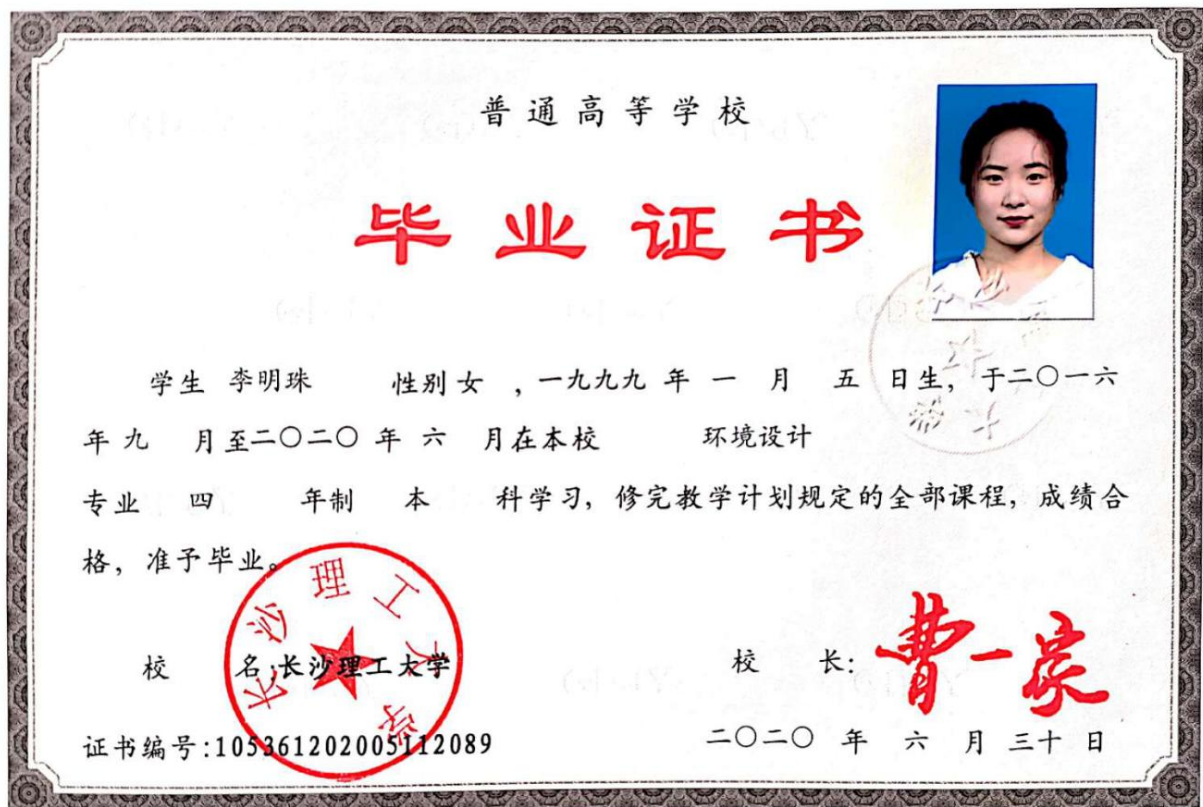 普通高等学校
毕业证书
学生 李明珠 性别 女 ,一九九九 年 一 月 五 日生, 于二〇一六
年 九 月至二〇二〇 年 六 月在本校 环境设计
专业 四 年制 本 科学习, 修完教学计划规定的全部课程, 成绩合
格, 准予毕业。
长沙理工大学
校 名:长沙理工大学
校 长: 曹一家
证书编号:105361202005112089
二〇二〇 年 六 月 三十 日